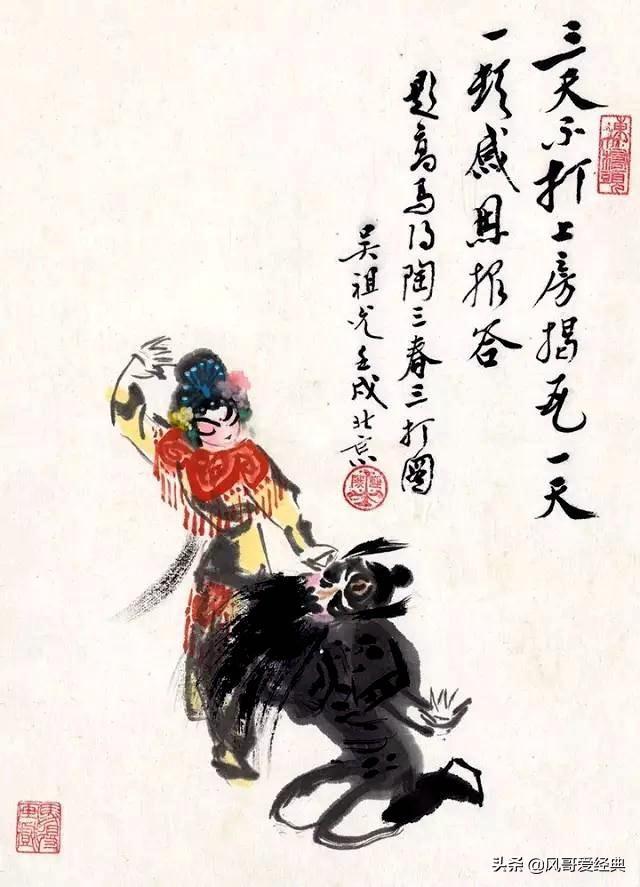 三天不打上房揭瓦一天
一顿感恩报答
题高马得陶三春三打图
吴祖光壬戌北京
头条 @风哥爱经典